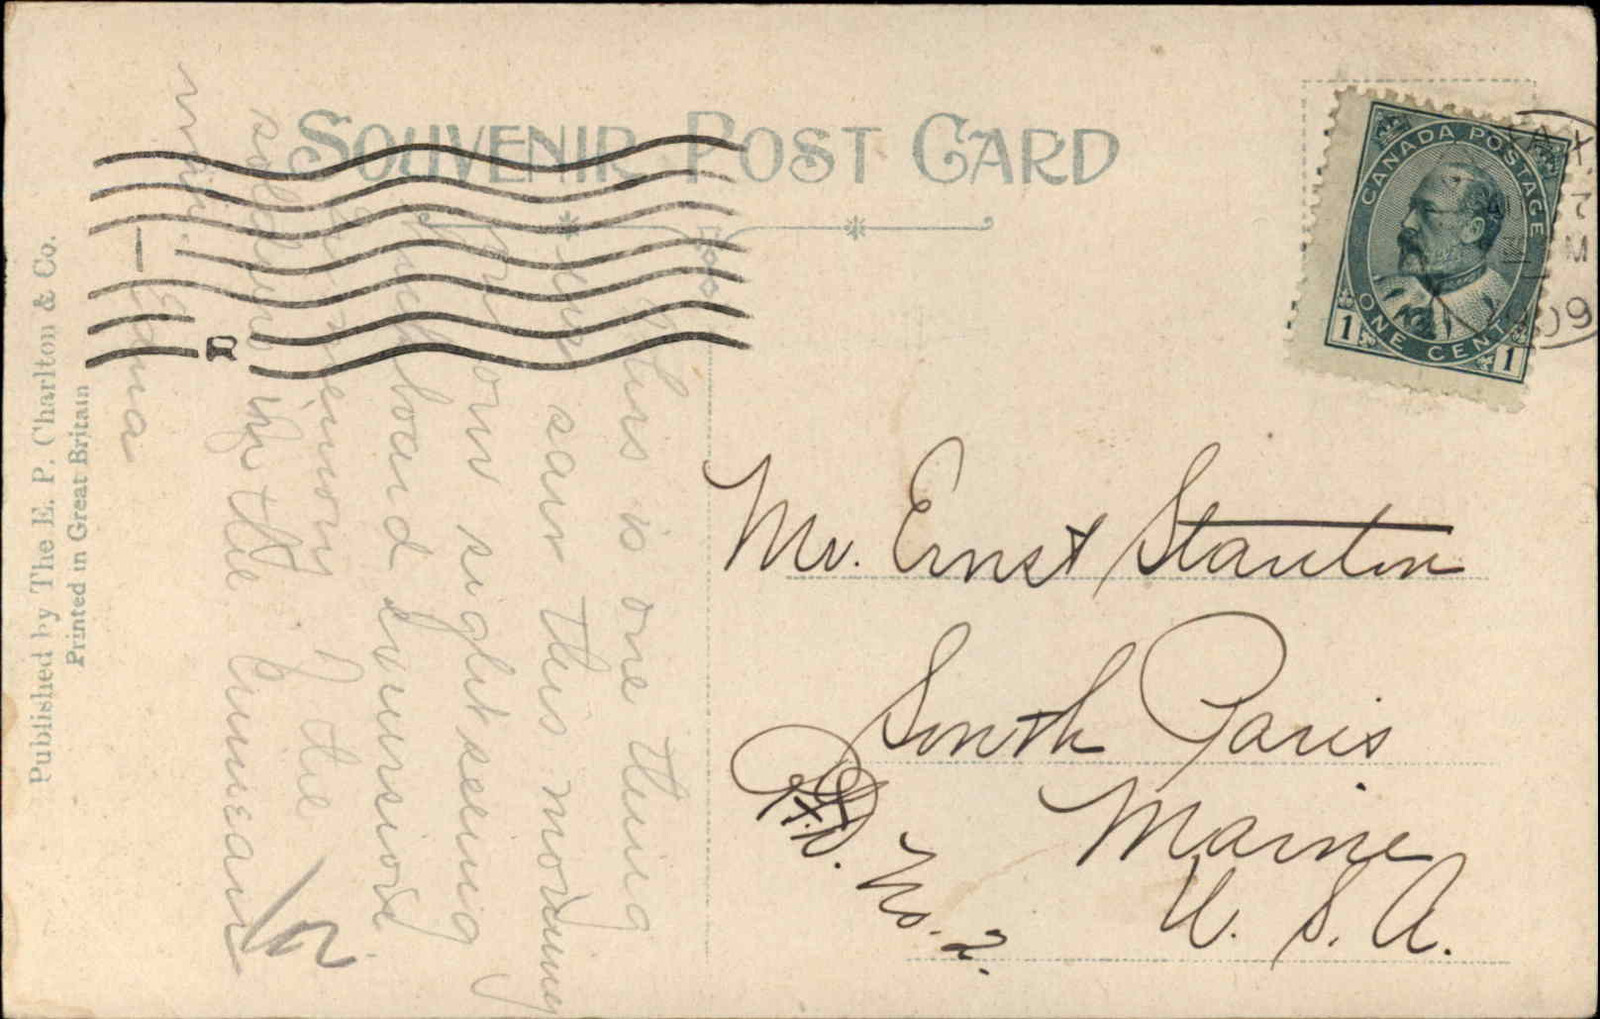 SOUVENIR POST CARD
Published by The E. P. Charlton & Co.
Printed in Great Britain
CANADA POSTAGE
ONE CENT
1 1
AX
7
M
09
R
This is one thing
we saw this morning
in our sight seeing
Buckboard Excursion
In memory of the
soldiers in the Crimean
war.
— Edna
Mr. Ernst Stanton
South Paris
Maine
U. S. A.
R.F.D. No. 2.